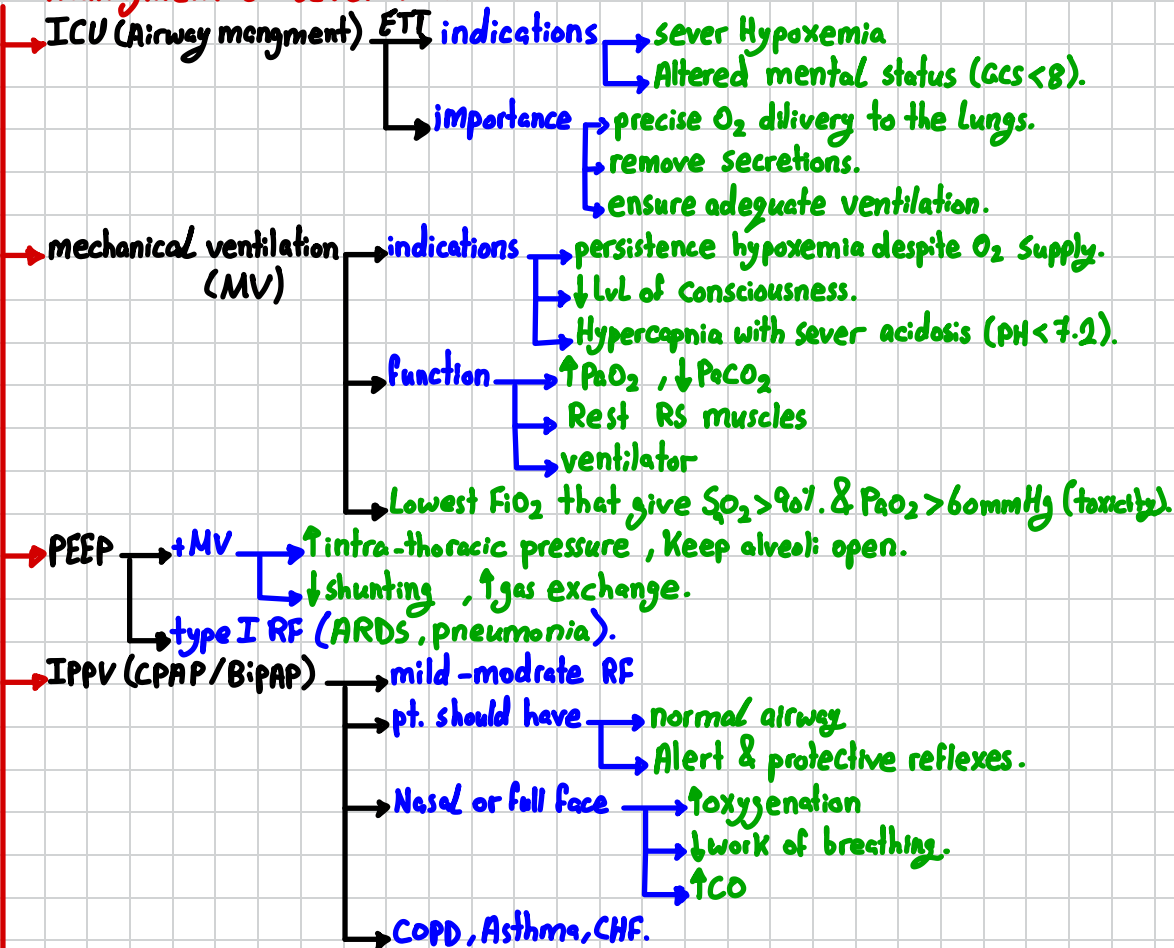 ICU (Airway mangment) ETI indications sever Hypoxemia
Altered mental status (GCS<8).
importance precise O₂ dilivery to the Lungs.
remove secretions.
ensure adequate ventilation.
mechanical ventilation indications persistence hypoxemia despite O₂ supply.
(MV) ↓ LvL of consciousness.
Hypercapnia with sever acidosis (PH<7.2).
function ↑PaO₂ , ↓PaCO₂
Rest RS muscles
ventilator
Lowest FiO₂ that give SaO₂>90% & PaO₂>60mmHg (toxicity).
PEEP +MV ↑intra-thoracic pressure , Keep alveoli open.
↓shunting , ↑gas exchange.
type I RF (ARDS, pneumonia).
IPPV (CPAP/BiPAP) mild-modrate RF
pt. should have normal airway
Alert & protective reflexes.
Nasal or full face ↑oxygenation
↓work of breathing.
↑CO
COPD, Asthma, CHF.